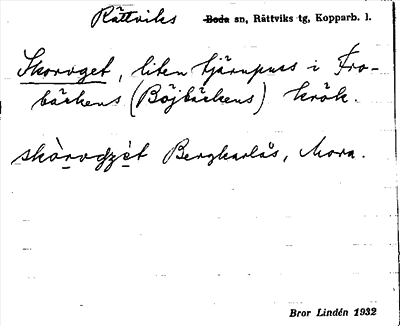 Rättviks Boda sn, Rättviks tg, Kopparb. l.
Skorvget, liten tjärnpuss i Fro-
bäckens (Böjbäckens) krök.
skòrvdzèt Bergkarlås, Mora.
Bror Lindén 1932